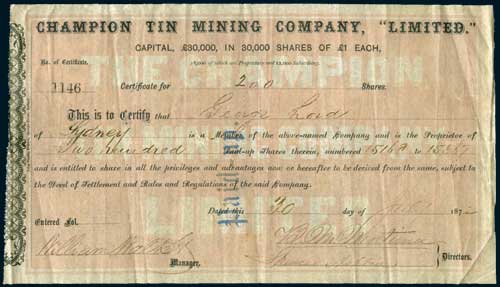 CHAMPION TIN MINING COMPANY, "LIMITED."
CAPITAL, £30,000, IN 30,000 SHARES OF £1 EACH,
No. of Certificate.
1146
Certificate for 200 Shares.
This is to Certify that George Lord
of Sydney is a Member of the above-named Company and is the Proprietor of
Two hundred Paid-up Shares therein, numbered to
and is entitled to share in all the privileges and advantages now or hereafter to be derived from the same, subject
to the Deed of Settlement and Rules and Regulations of the said Company.
Dated this 30 day of 187
Entered Fol.
William
Manager.
Directors.